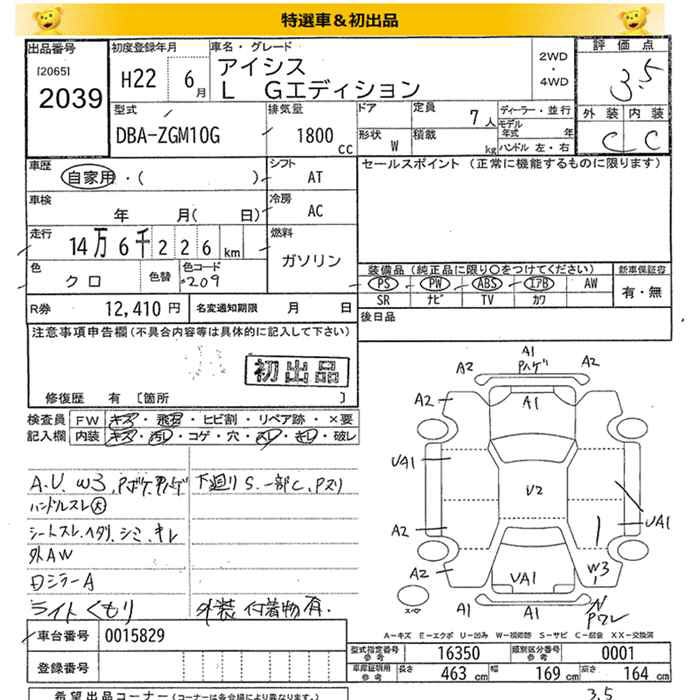 特選車&初出品
出品番号
[2065]
2039
初度登録年月
H22 6月
車名・グレード
アイシス
L Gエディション
2WD
・
4WD
評価点
3.5
外装 内装
C C
型式
DBA-ZGM10G
排気量
1800
CC
ドア
形状 W
定員
7人
積載
kg
ディーラー・並行
モデル
年式 年
ハンドル 左・右
車歴
自家用・( )
シフト
AT
セールスポイント (正常に機能するものに限ります)
車検
年 月(日)
冷房
AC
走行
14万6千226km
燃料
ガソリン
色
クロ
色替
色コード
209
装備品(純正品に限り○をつけてください)
PS PW ABS エアB AW
SR ナビ TV カワ
新車保証書
有・無
R券
12,410円
名変通知期限 月 日
後日品
注意事項申告欄(不具合内容等は具体的に記入して下さい)
初出品
修復歴 有 [箇所 ]
検査員
記入欄
FW キズ・飛石・ヒビ割・リペア跡・×要
内装 キズ・汚れ・コゲ・穴・スレ・キレ・破レ
A.U.W3,Pボケ,Pハゲ
下廻りS.一部C、Pズリ
ハンドルスレ大
シートスレ,ヘタリ,シミ,キレ
外AW
ロジラーA
ライトくもり
外装付着物有.
A1
Pハゲ
A2
A2
A2
A1
A2
UA1
U2
UA1
A2
W3
A2
UA1
A1
A1
スペア
A-キズ E-エクボ U-凹み W-補修跡 S-サビ C-腐食 XX-交換済
車台番号
0015829
登録番号
型式指定番号
参考
16350
類別区分番号
参考
0001
車庫証明用
参考
長さ 463 cm
幅 169 cm
高さ 164 cm
希望出品コーナー(コーナーは各会場により異なります。)
3.5